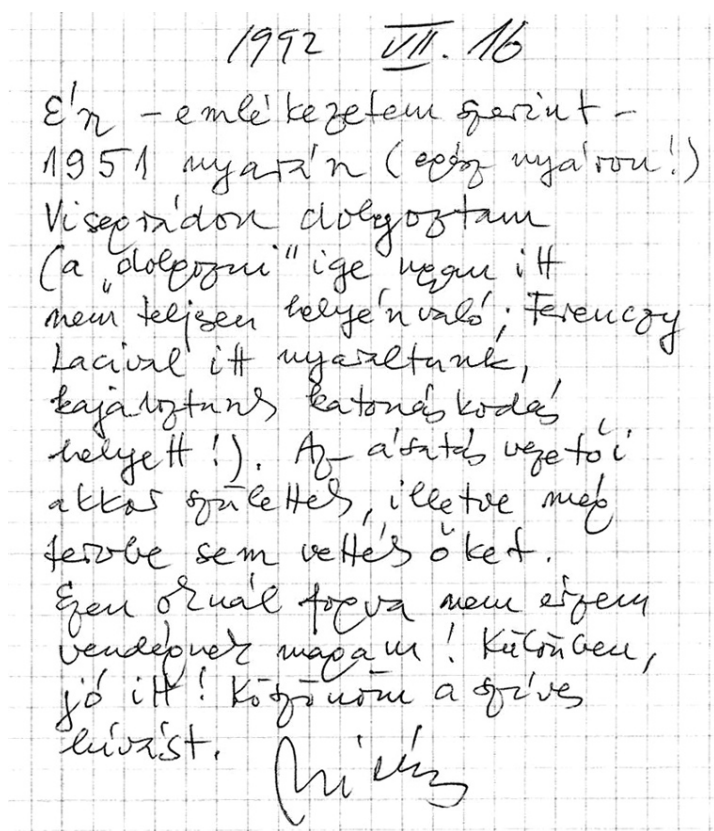 1992 VII. 16
Én – emlékezetem szerint –
1951 nyarán (egész nyáron!)
Visegrádon dolgoztam
(a „dolgozni" ige ugyan itt
nem teljesen helyénvaló; Ferenczy
Lacival itt nyaraltunk,
kajáloztunk katonáskodás
helyett!). Az ásatás vezetői
akkor születtek, illetve még
tervbe sem vették őket.
Ezen oknál fogva nem érzem
vendégnek magam! Különben,
jó itt! Köszönöm a szíves
hívást.